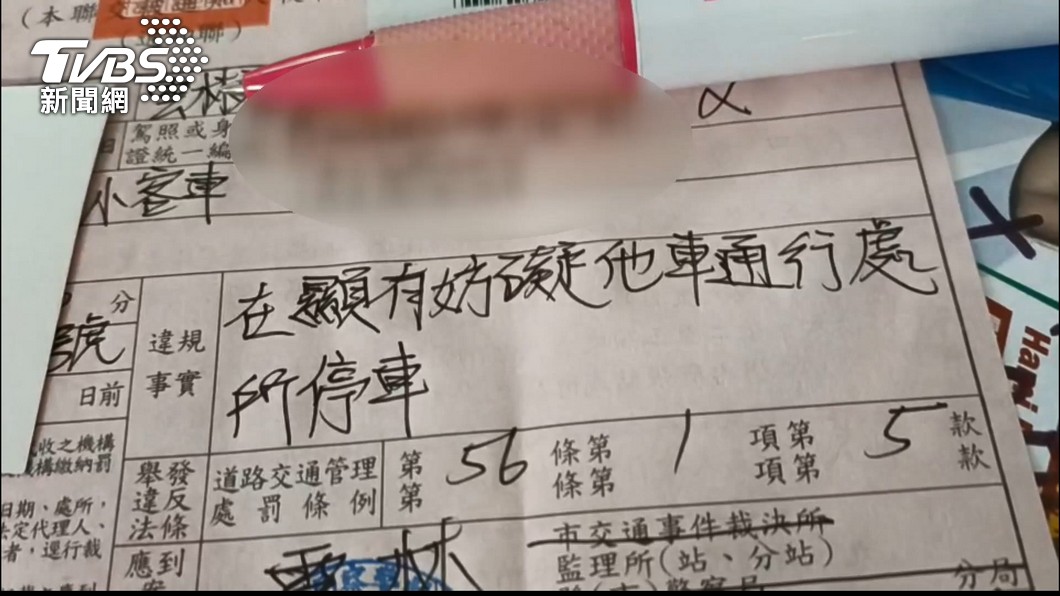 (本聯
聯)
TVBS
新聞網
林
駕照或身
證統一編
小客車
分
號
日前
違規
事實
在顯有妨礙他車通行處
所停車
收之機構
機構繳納罰
舉發
違反
法條
道路交通管理
處罰條例
第 56 條第 1 項第 5 款
第 條第 項第 款
日期、處所,
法定代理人、
者,逕行裁
應到
雲林
市交通事件裁決所
監理所(站、分站)
警察局
分局